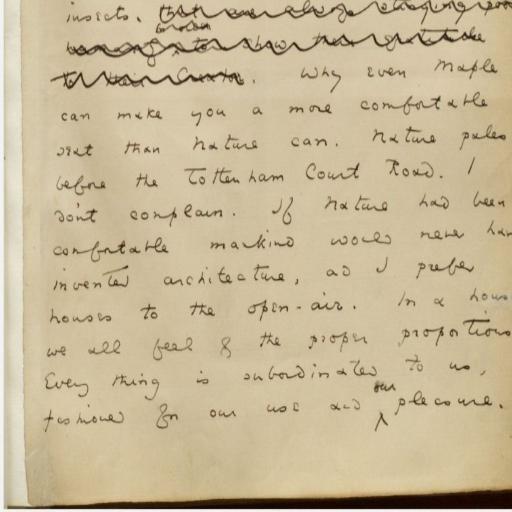 insects.
. Why even Maple
can make you a more comfortable
seat than Nature can. Nature pales
before the Tottenham Court Road. I
don't complain. If Nature had been
comfortable mankind would never hav
invented architecture, and I prefer
houses to the open-air. In a hous
we all feel of the proper proportions
Every thing is subordinated to us,
fashioned for our use and our pleasure.